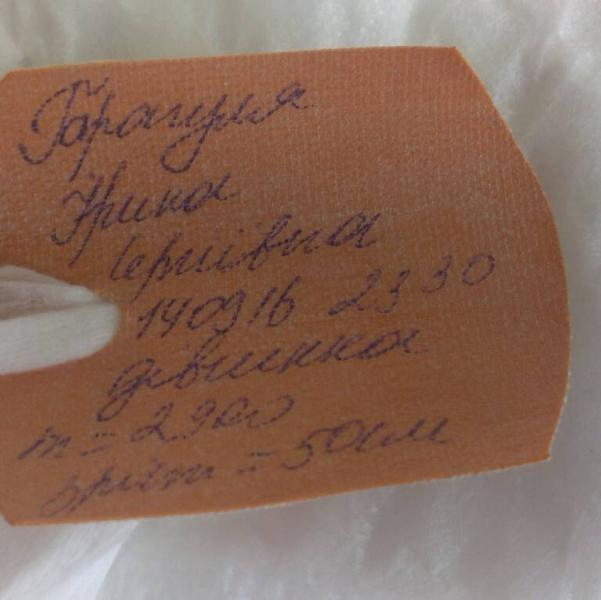 Ірина
Сергіївна
140916 2330
дівчинка
m = 2900
зріст = 50 см